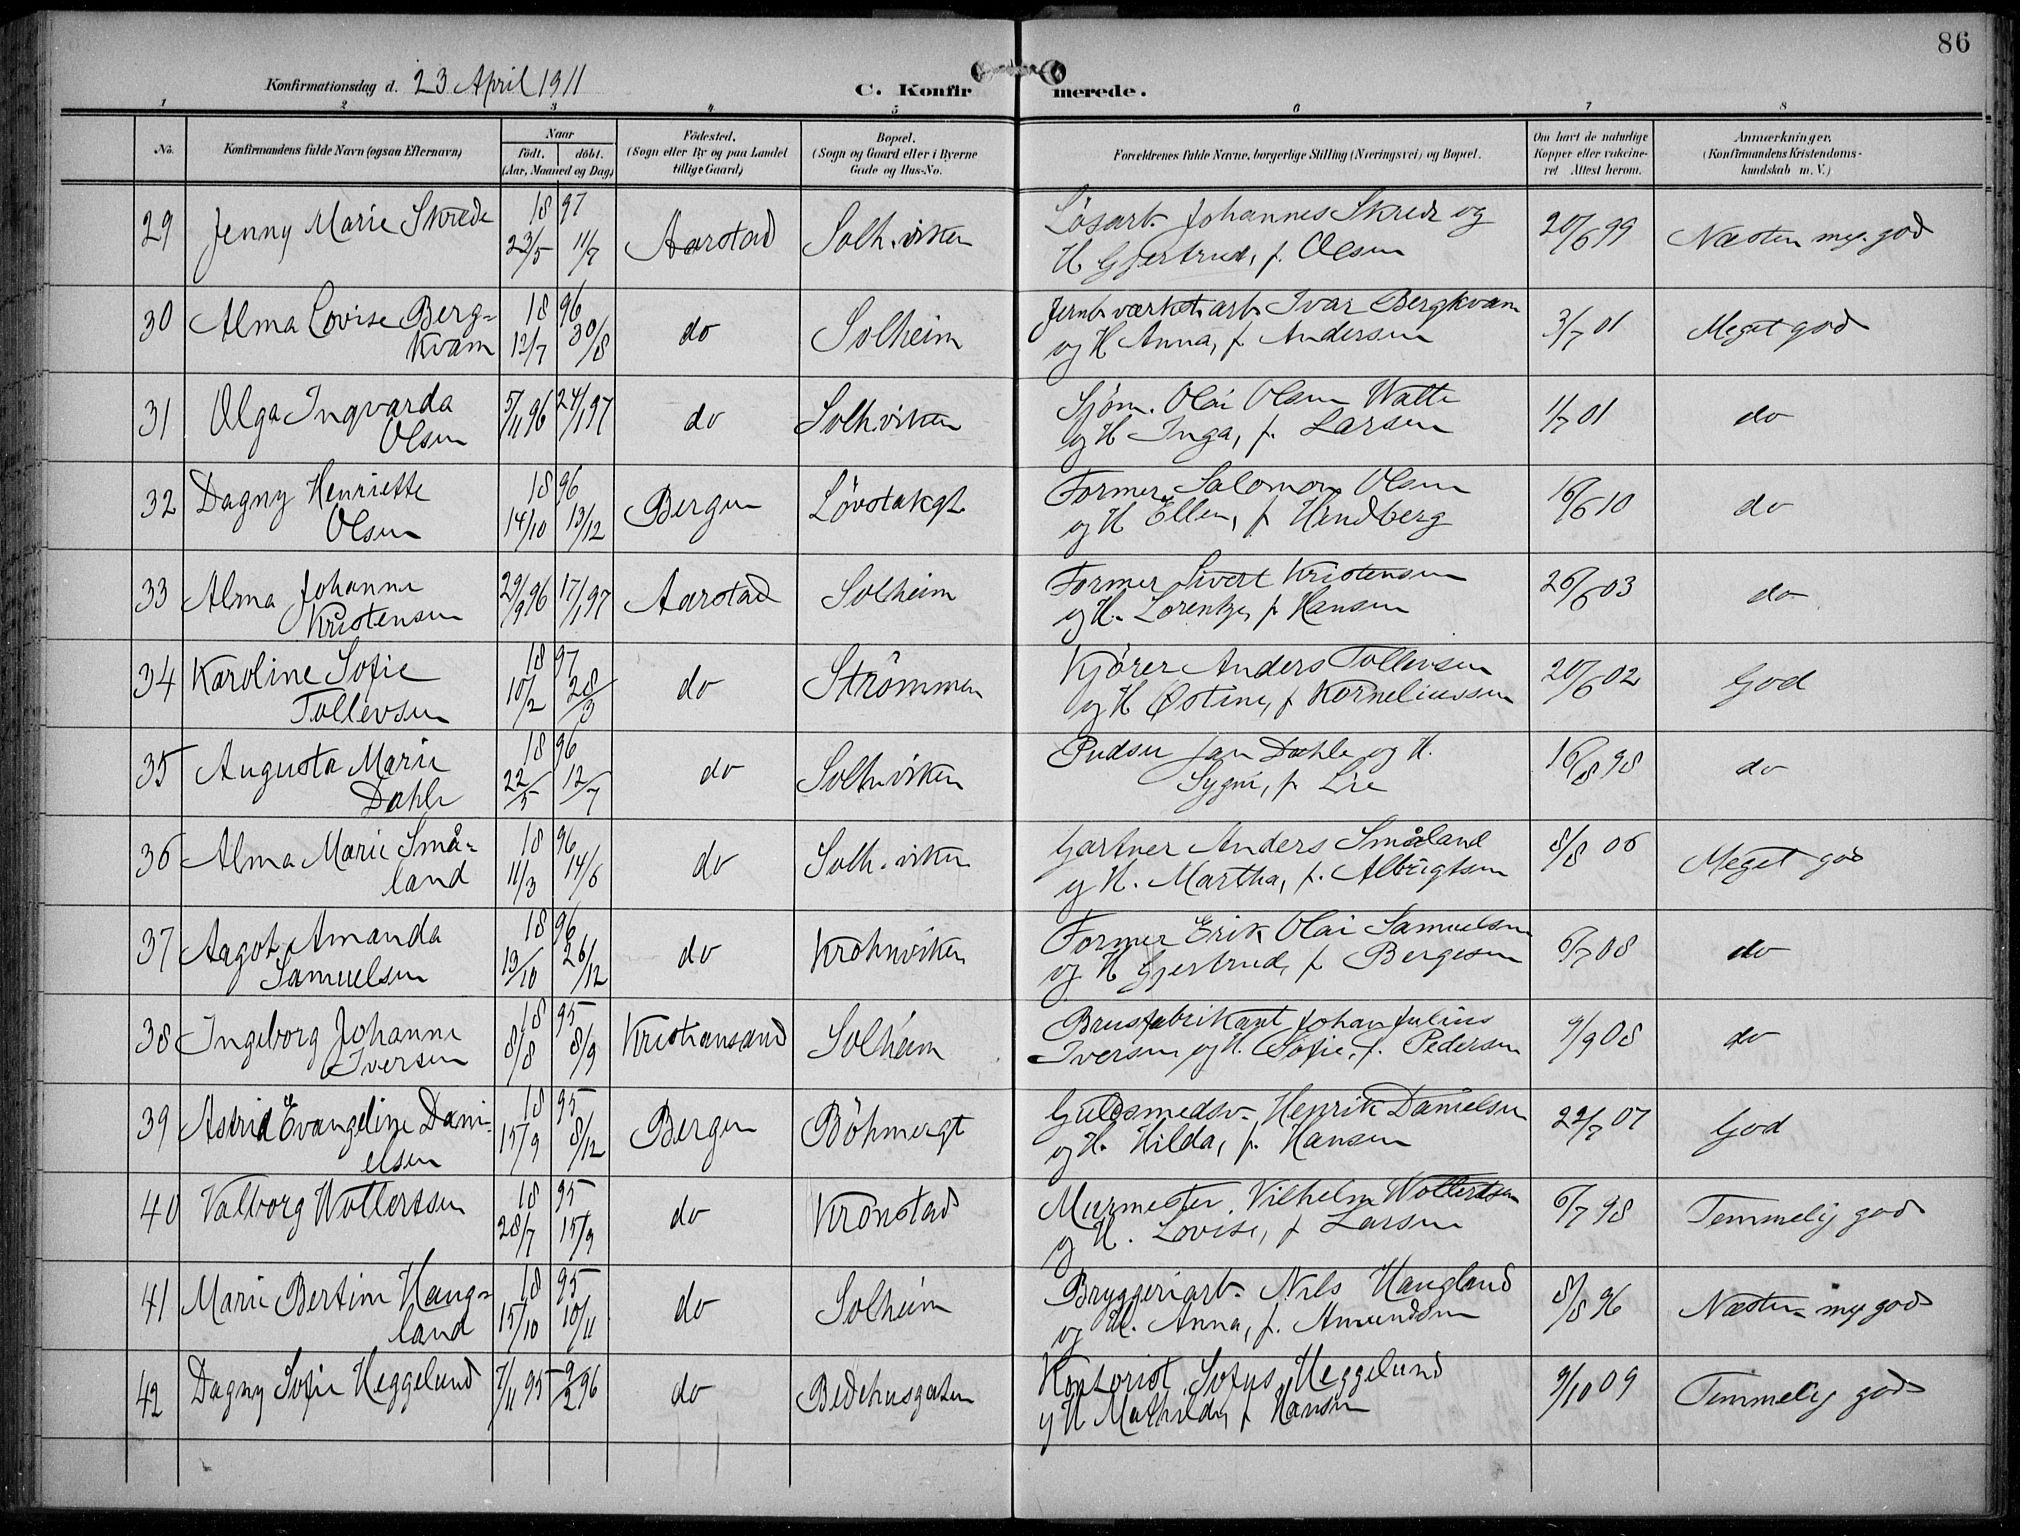 86
Konfirmationsdag d. 23 April 1911
C. Konfirmerede.
1 2 3 4 5 6 7 8
No.
Konfirmandens fulde Navn (ogsaa Efternavn)
Naar
født. døbt.
(Aar, Maaned og Dag)
Fødested.
(Sogn eller By og paa Landet
tillige Gaard)
Bopæl.
(Sogn og Gaard eller i Byerne
Gade og Hus-No.
Forældrenes fulde Navne, borgerlige Stilling (Næringsvei) og Bopæl.
Om havt de naturlige
Kopper eller vakcine-
ret Attest herom.
Anmærkninger.
(Konfirmandens Kristendoms-
kundskab m. V.)
29 Jenny Marie Skrede 18 97 23/5 11/7 Aarstad Solh.viken Løsarb. Johannes Skrede og
H Gjertrud, f. Olsen 20/6 99 Næsten meg. god
30 Alma Lovise Berg-
kvam 18 96 12/7 30/8 do Solheim Jernb værkst. arb. Ivar Bergkvam
og H Anna, f. Andersen 3/7 01 Meget god
31 Olga Ingvarda
Olsen 5/11 96 24/1 97 do Solh.viken Sjøm. Olai Olsen
og H Inga, f. Larsen 1/7 01 do
32 Dagny Henriette
Olsen 18 96 14/10 13/12 Bergen Løvstakgt Former Salomon Olsen
og H Ellen, f. Hindberg 16/6 10 do
33 Alma Johanne
Kristensen 29/9 96 17/1 97 Aarstad Solheim Former Sivert Kristensen
og H. Lorentze, f. Hansen 26/6 03 do
34 Karoline Sofie
Tollevsen 18 97 10/2 28/3 do Strømmen Kjører Anders Tollevsen
og H Østine, f Korneliussen 20/6 02 God
35 Augusta Marie
Dahle 18 96 22/5 12/7 do Solh.viken Pudser Jan Dahle og H.
Sygni, f. Lie 16/8 98 do
36 Alma Marie Små-
land 18 96 11/3 14/6 do Solh.viken Gartner Anders Småland
og H. Martha, f. Albrigtsen 8/8 06 Meget god
37 Aagot Amanda
Samuelsen 18 96 13/10 26/12 do Krohnviken Former Erik Olai Samuelsen
og H Gjertrud, f Bergesen 6/7 08 do
38 Ingeborg Johanne
Iversen 18 95 8/8 8/9 Kristiansand Solheim Brusfabrikant Johan Julius
Iversen og H. Sofie, f. Pedersen 9/9 08 do
39 Astrid Evangeline Dani-
elsen 18 95 15/9 8/12 Bergen Bøhmergt Guldsmedsv. Henrik Danielsen
og H. Hilda, f. Hansen 22/7 07 God
40 Valborg Woltertsen 18 95 28/7 15/9 do Kronstad Murmester Vilhelm Woltertsen
og H. Lovise, f Larsen 6/7 98 Temmelig god
41 Marie Bertine Haug-
land 18 95 15/10 10/11 do Solheim Bryggeriarb. Nils Haugland
og H. Anna, f. Amundsen 8/8 96 Næsten meg god
42 Dagny Sofie Heggelund 7/11 95 9/2 96 do Bedehusgaten Kontorist Sofus Heggelund
og H Mathilde, f Hansen 9/10 09 Temmelig god